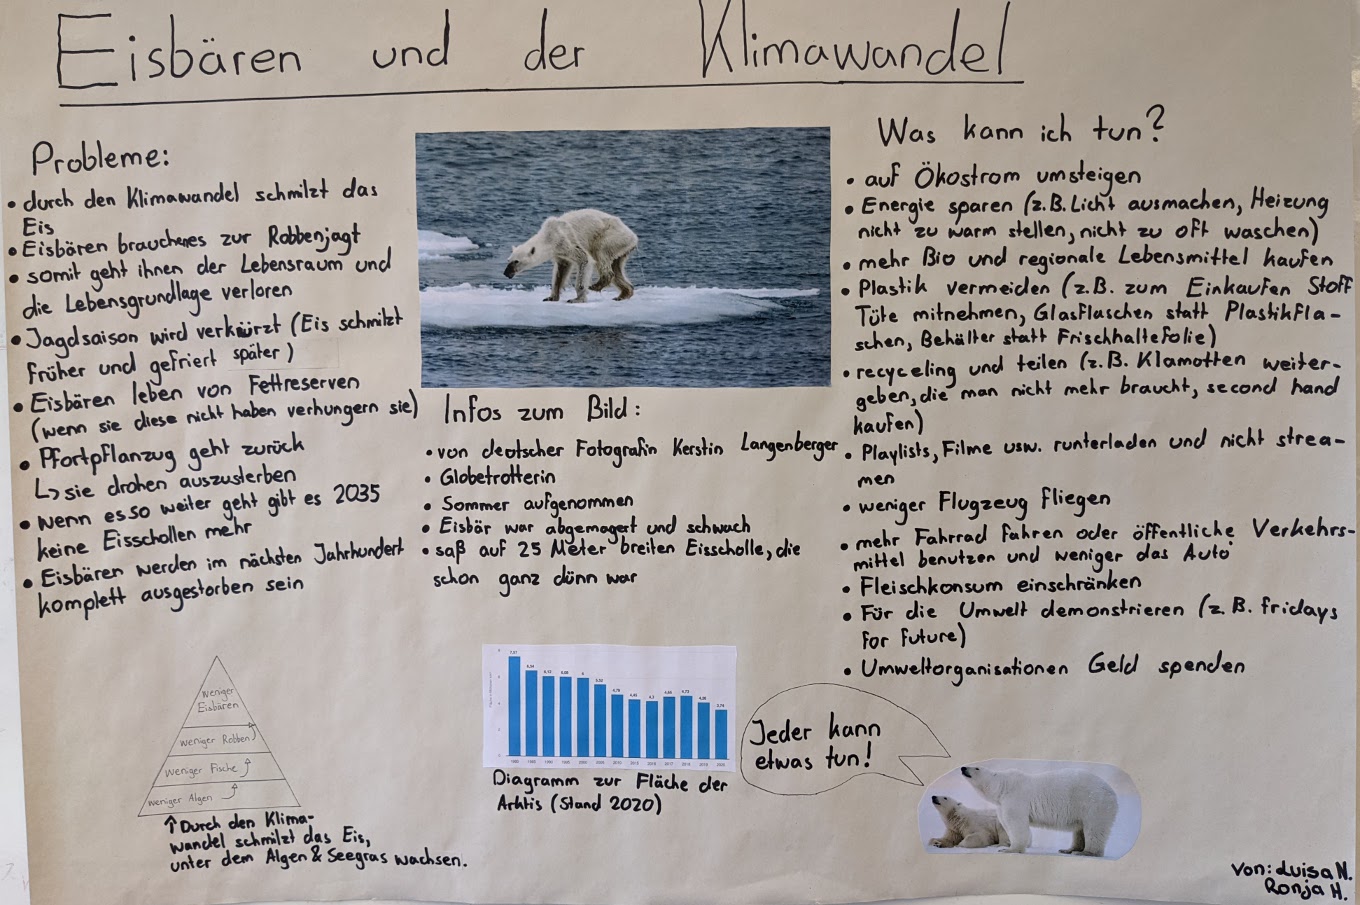 Eisbären und der Klimawandel
Probleme:
• durch den Klimawandel schmilzt das
Eis
• Eisbären brauchenes zur Robbenjagt
• somit geht ihnen der Lebensraum und
die Lebensgrundlage verloren
• Jagdsaison wird verkürzt (Eis schmilzt
früher und gefriert später)
• Eisbären leben von Fettreserven
(wenn sie diese nicht haben verhungern sie)
• Pfortpflanzug geht zurück
↳ sie drohen auszusterben
• wenn es so weiter geht gibt es 2035
keine Eisschollen mehr
• Eisbären werden im nächsten Jahrhundert
komplett ausgestorben sein
Infos zum Bild:
• von deutscher Fotografin Kerstin Langenberger
• Globetrotterin
• Sommer aufgenommen
• Eisbär war abgemagert und schwach
• saß auf 25 Meter breiten Eisscholle, die
schon ganz dünn war
Was kann ich tun?
• auf Ökostrom umsteigen
• Energie sparen (z.B. Licht ausmachen, Heizung
nicht zu warm stellen, nicht zu oft waschen)
• mehr Bio und regionale Lebensmittel kaufen
• Plastik vermeiden (z.B. zum Einkaufen Stoff
Tüte mitnehmen, Glasflaschen statt Plastikfla-
schen, Behälter statt Frischhaltefolie)
• recyceling und teilen (z.B. Klamotten weiter-
geben, die man nicht mehr braucht, second hand
kaufen)
• Playlists, Filme usw. runterladen und nicht strea-
men
• weniger Flugzeug fliegen
• mehr Fahrrad fahren oder öffentliche Verkehrs-
mittel benutzen und weniger das Auto
• Fleischkonsum einschränken
• Für die Umwelt demonstrieren (z.B. fridays
for future)
• Umweltorganisationen Geld spenden
weniger
Eisbären
weniger Robben
weniger Fische
weniger Algen
↑ Durch den Klima-
wandel schmilzt das Eis,
unter dem Algen & Seegras wachsen.
Diagramm zur Fläche der
Arktis (Stand 2020)
Jeder kann
etwas tun!
von: Luisa N.
Ronja H.